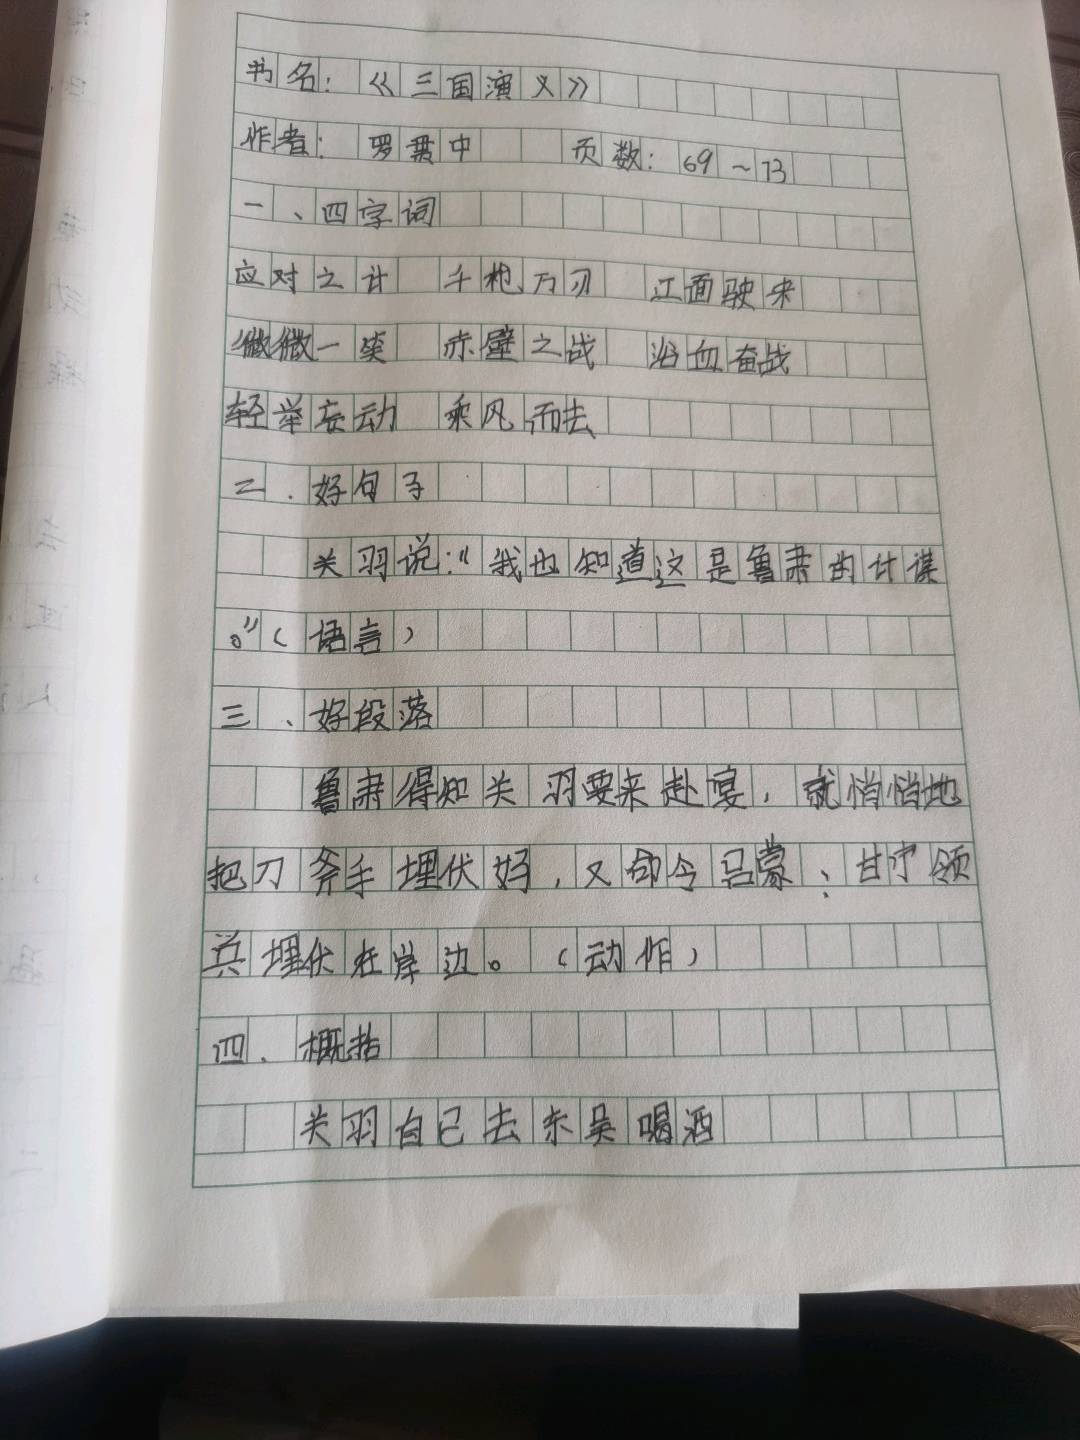 书名：《三国演义》
作者：罗贯中 页数：69~73
一、四字词
应对之计 千枪万刃 江面驶来
微微一笑 赤壁之战 浴血奋战
轻举妄动 乘风而去
二、好句子
关羽说：“我也知道这是鲁肃的计谋
。”（语言）
三、好段落
鲁肃得知关羽要来赴宴，就悄悄地
把刀斧手埋伏好，又命令吕蒙；甘宁领
兵埋伏在岸边。（动作）
四、概括
关羽自己去东吴喝酒